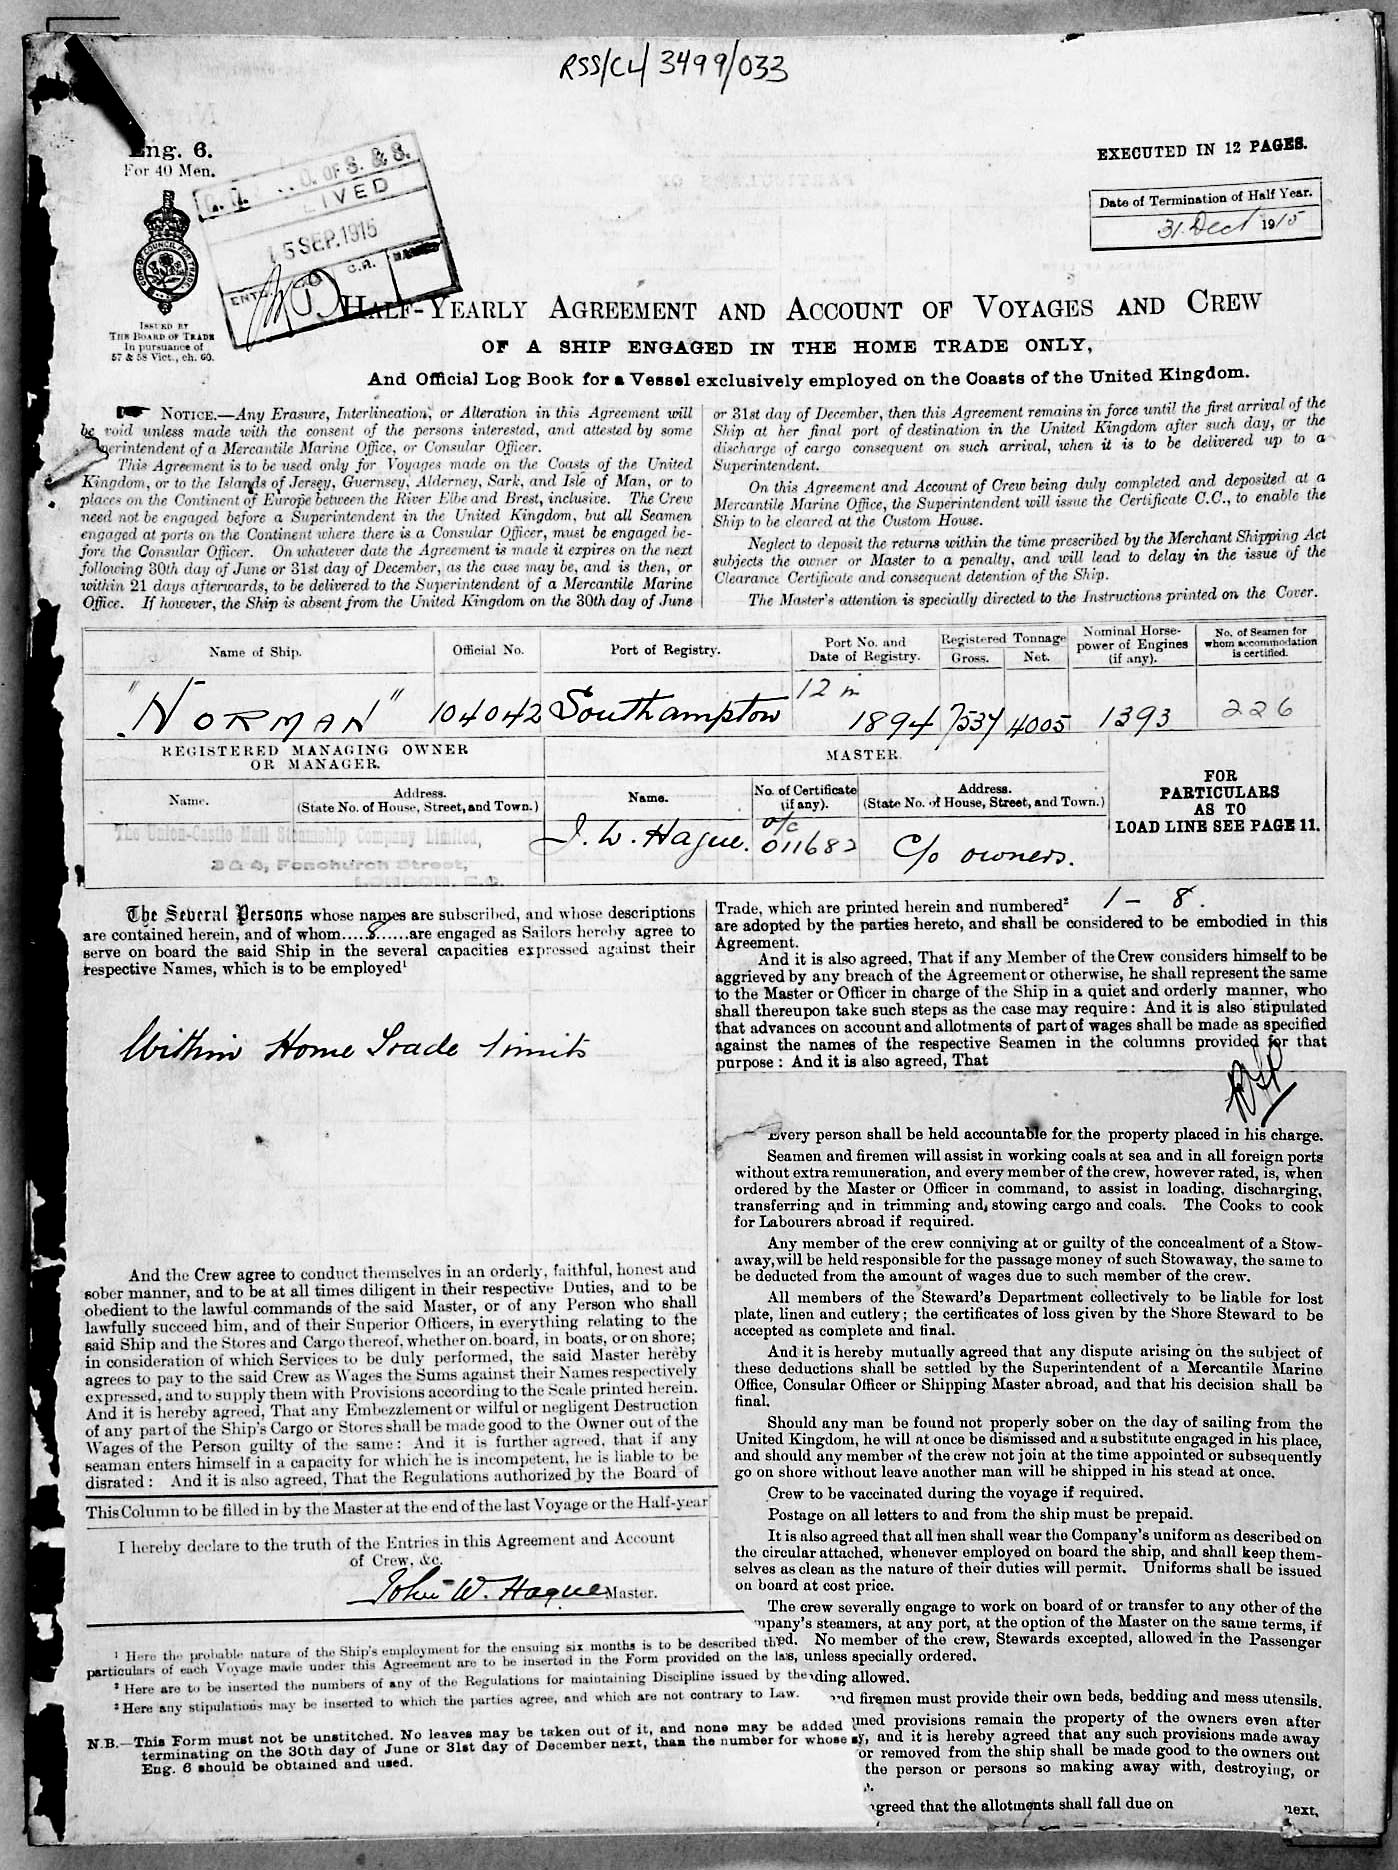 RSS/CL/3499/033
Eng. 6.
For 40 Men.
EXECUTED IN 12 PAGES.
Date of Termination of Half Year.
31 Dec 1915
OF S. & S.
15 SEP. 1915
ISSUED BY
THE BOARD OF TRADE
In pursuance of
57 & 58 Vict., ch. 60.
HALF-YEARLY AGREEMENT AND ACCOUNT OF VOYAGES AND CREW
OF A SHIP ENGAGED IN THE HOME TRADE ONLY,
And Official Log Book for a Vessel exclusively employed on the Coasts of the United Kingdom.
NOTICE.—Any Erasure, Interlineation, or Alteration in this Agreement will
be void unless made with the consent of the persons interested, and attested by some
Superintendent of a Mercantile Marine Office, or Consular Officer.
This Agreement is to be used only for Voyages made on the Coasts of the United
Kingdom, or to the Islands of Jersey, Guernsey, Alderney, Sark, and Isle of Man, or to
places on the Continent of Europe between the River Elbe and Brest, inclusive. The Crew
need not be engaged before a Superintendent in the United Kingdom, but all Seamen
engaged at ports on the Continent where there is a Consular Officer, must be engaged be-
fore the Consular Officer. On whatever date the Agreement is made it expires on the next
following 30th day of June or 31st day of December, as the case may be, and is then, or
within 21 days afterwards, to be delivered to the Superintendent of a Mercantile Marine
Office. If however, the Ship is absent from the United Kingdom on the 30th day of June
or 31st day of December, then this Agreement remains in force until the first arrival of the
Ship at her final port of destination in the United Kingdom after such day, or the
discharge of cargo consequent on such arrival, when it is to be delivered up to a
Superintendent.
On this Agreement and Account of Crew being duly completed and deposited at a
Mercantile Marine Office, the Superintendent will issue the Certificate C.C., to enable the
Ship to be cleared at the Custom House.
Neglect to deposit the returns within the time prescribed by the Merchant Shipping Act
subjects the owner or Master to a penalty, and will lead to delay in the issue of the
Clearance Certificate and consequent detention of the Ship.
The Master's attention is specially directed to the Instructions printed on the Cover.
Name of Ship. Official No. Port of Registry. Port No. and Date of Registry. Registered Tonnage Gross. Net. Nominal Horse-power of Engines (if any). No. of Seamen for whom accommodation is certified.
"NORMAN" 104042 Southampton 12 in 1894 7537 4005 1393 226
REGISTERED MANAGING OWNER
OR MANAGER.
MASTER.
Name. Address. (State No. of House, Street, and Town.) Name. No. of Certificate (if any). Address. (State No. of House, Street, and Town.)
FOR
PARTICULARS
AS TO
LOAD LINE SEE PAGE 11.
The Union-Castle Mail Steamship Company Limited,
3 & 4, Fenchurch Street,
LONDON, E.C.
J. W. Hague. o/c 011682 C/o owners.
The Several Persons whose names are subscribed, and whose descriptions
are contained herein, and of whom.....8.....are engaged as Sailors hereby agree to
serve on board the said Ship in the several capacities expressed against their
respective Names, which is to be employed¹
Within Home Trade limits
And the Crew agree to conduct themselves in an orderly, faithful, honest and
sober manner, and to be at all times diligent in their respective Duties, and to be
obedient to the lawful commands of the said Master, or of any Person who shall
lawfully succeed him, and of their Superior Officers, in everything relating to the
said Ship and the Stores and Cargo thereof, whether on board, in boats, or on shore;
in consideration of which Services to be duly performed, the said Master hereby
agrees to pay to the said Crew as Wages the Sums against their Names respectively
expressed, and to supply them with Provisions according to the Scale printed herein.
And it is hereby agreed, That any Embezzlement or wilful or negligent Destruction
of any part of the Ship's Cargo or Stores shall be made good to the Owner out of the
Wages of the Person guilty of the same: And it is further agreed, that if any
seaman enters himself in a capacity for which he is incompetent, he is liable to be
disrated: And it is also agreed, That the Regulations authorized by the Board of
This Column to be filled in by the Master at the end of the last Voyage or the Half-year
I hereby declare to the truth of the Entries in this Agreement and Account
of Crew, &c.
John W. Hague Master.
¹ Here the probable nature of the Ship's employment for the ensuing six months is to be described
particulars of each Voyage made under this Agreement are to be inserted in the Form provided on the
² Here are to be inserted the numbers of any of the Regulations for maintaining Discipline issued by the
³ Here any stipulations may be inserted to which the parties agree, and which are not contrary to Law.
N.B.—This Form must not be unstitched. No leaves may be taken out of it, and none may be added
terminating on the 30th day of June or 31st day of December next, than the number for whose
Eng. 6 should be obtained and used.
Trade, which are printed herein and numbered² 1 – 8.
are adopted by the parties hereto, and shall be considered to be embodied in this
Agreement.
And it is also agreed, That if any Member of the Crew considers himself to be
aggrieved by any breach of the Agreement or otherwise, he shall represent the same
to the Master or Officer in charge of the Ship in a quiet and orderly manner, who
shall thereupon take such steps as the case may require: And it is also stipulated
that advances on account and allotments of part of wages shall be made as specified
against the names of the respective Seamen in the columns provided for that
purpose: And it is also agreed, That
Every person shall be held accountable for the property placed in his charge.
Seamen and firemen will assist in working coals at sea and in all foreign ports
without extra remuneration, and every member of the crew, however rated, is, when
ordered by the Master or Officer in command, to assist in loading, discharging,
transferring and in trimming and stowing cargo and coals. The Cooks to cook
for Labourers abroad if required.
Any member of the crew conniving at or guilty of the concealment of a Stow-
away, will be held responsible for the passage money of such Stowaway, the same to
be deducted from the amount of wages due to such member of the crew.
All members of the Steward's Department collectively to be liable for lost
plate, linen and cutlery; the certificates of loss given by the Shore Steward to be
accepted as complete and final.
And it is hereby mutually agreed that any dispute arising on the subject of
these deductions shall be settled by the Superintendent of a Mercantile Marine
Office, Consular Officer or Shipping Master abroad, and that his decision shall be
final.
Should any man be found not properly sober on the day of sailing from the
United Kingdom, he will at once be dismissed and a substitute engaged in his place,
and should any member of the crew not join at the time appointed or subsequently
go on shore without leave another man will be shipped in his stead at once.
Crew to be vaccinated during the voyage if required.
Postage on all letters to and from the ship must be prepaid.
It is also agreed that all men shall wear the Company's uniform as described on
the circular attached, whenever employed on board the ship, and shall keep them-
selves as clean as the nature of their duties will permit. Uniforms shall be issued
on board at cost price.
The crew severally engage to work on board of or transfer to any other of the
mpany's steamers, at any port, at the option of the Master on the same terms, if
ed. No member of the crew, Stewards excepted, allowed in the Passenger
s, unless specially ordered.
ding allowed.
and firemen must provide their own beds, bedding and mess utensils.
med provisions remain the property of the owners even after
y, and it is hereby agreed that any such provisions made away
or removed from the ship shall be made good to the owners out
the person or persons so making away with, destroying, or
agreed that the allotments shall fall due on next.